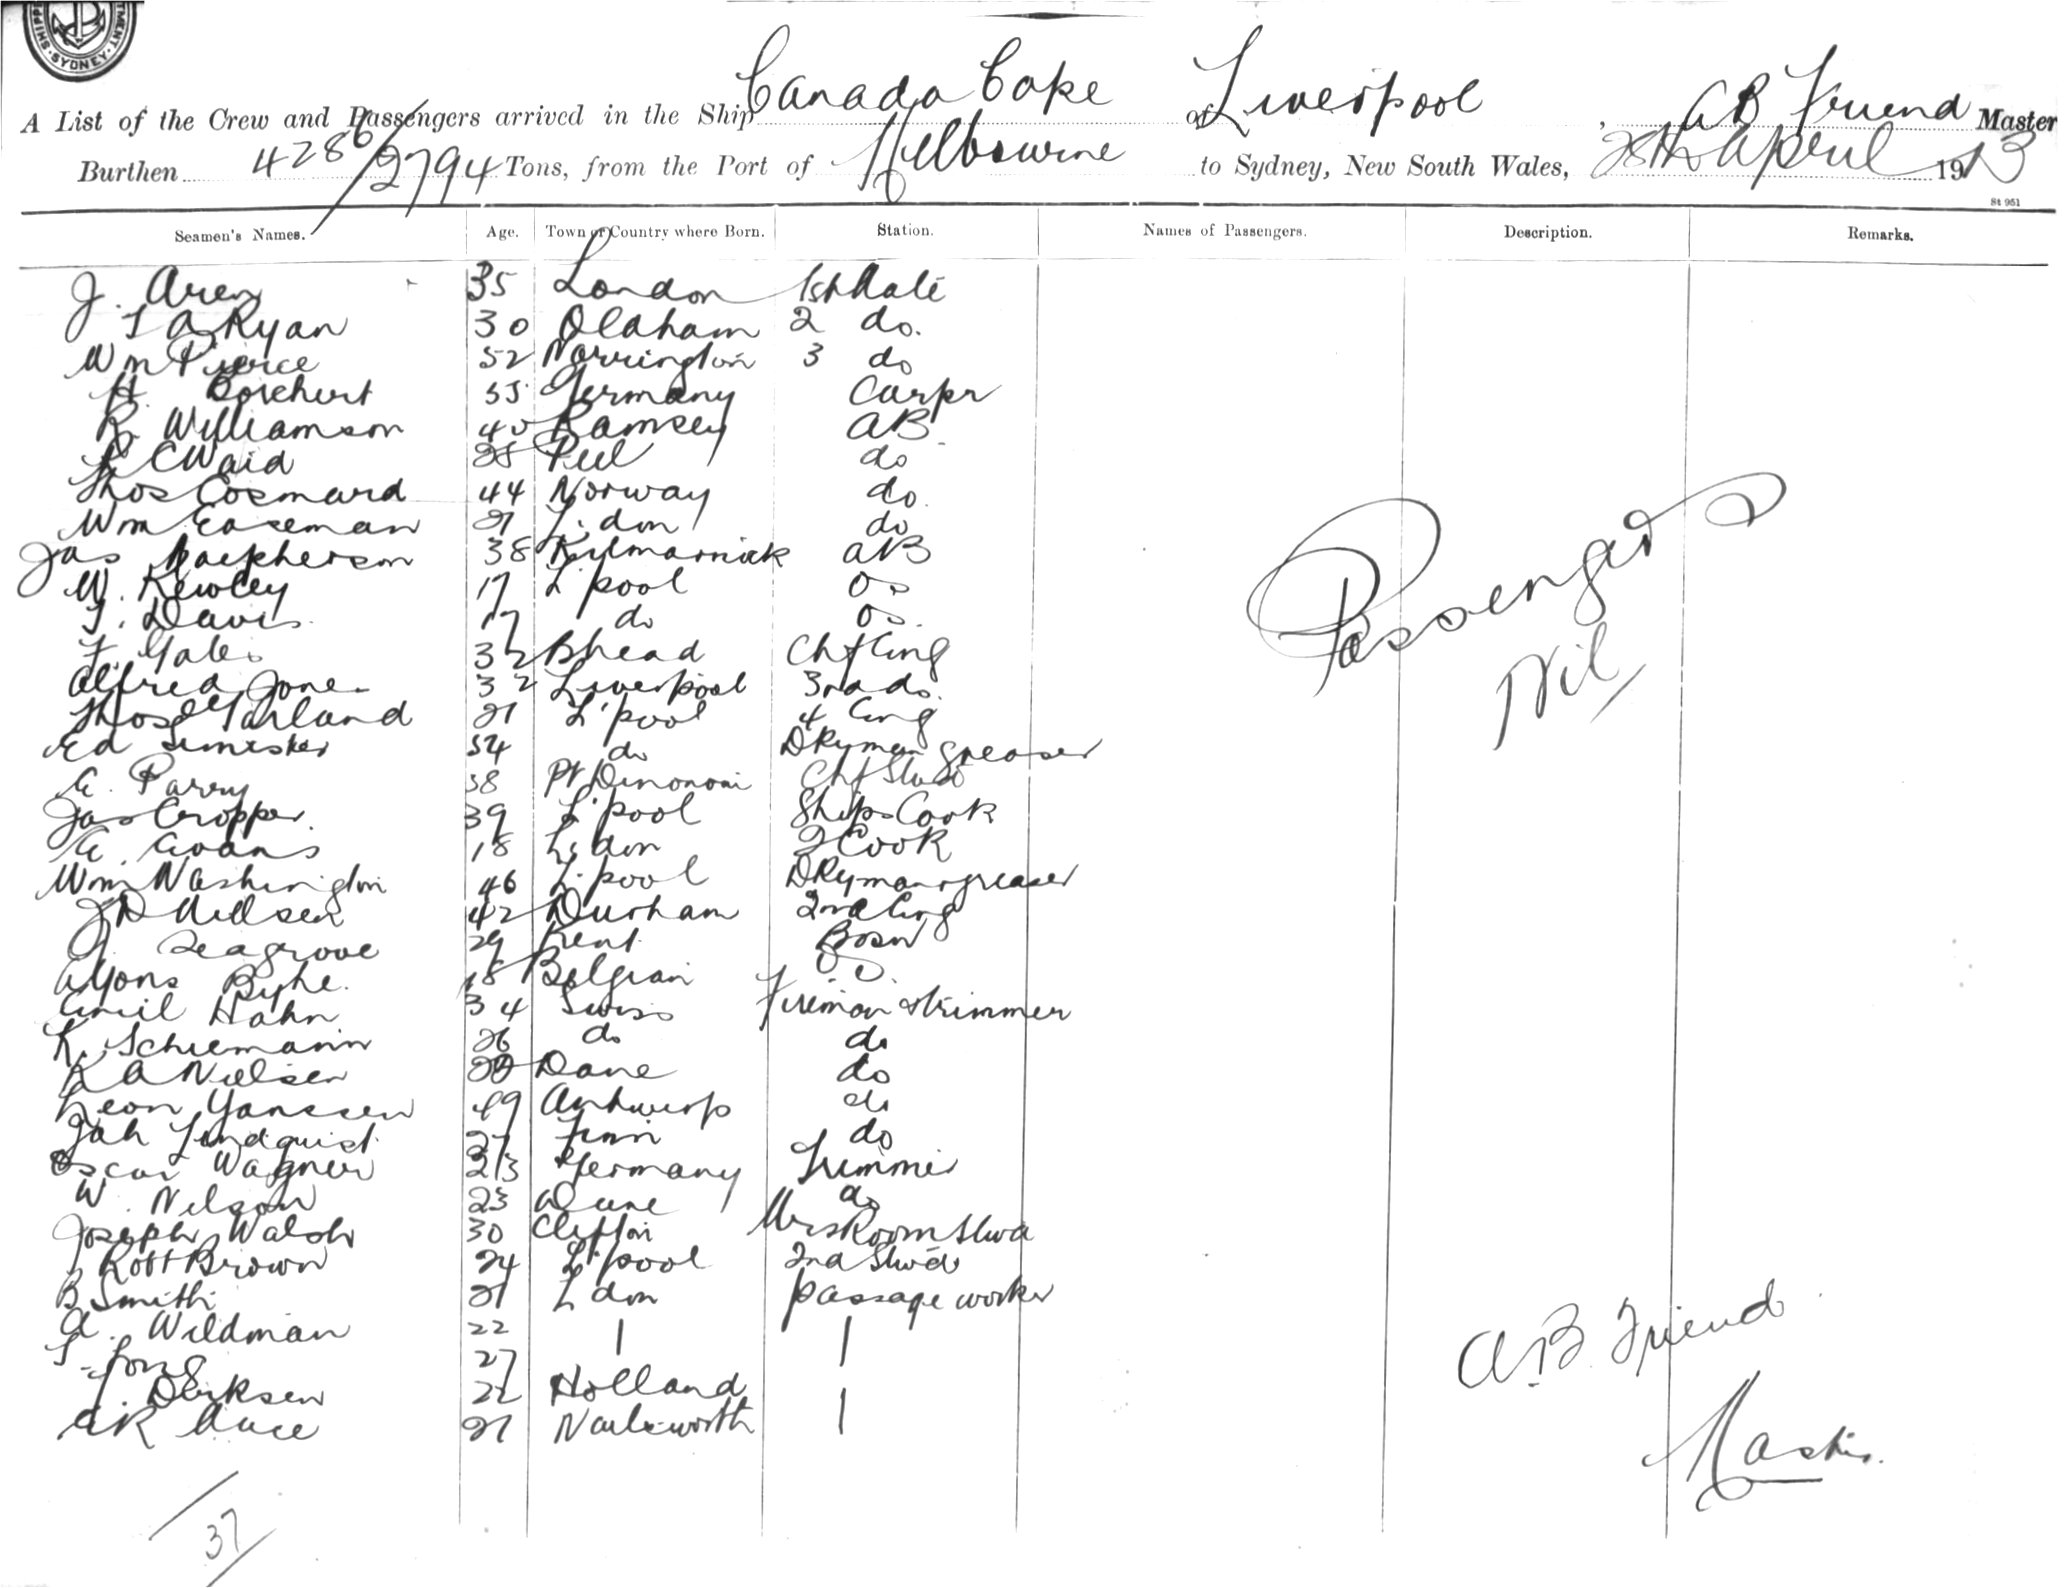 SYDNEY
A List of the Crew and Passengers arrived in the Ship Canada Cape of Liverpool, AB Friend Master
Burthen 4286/2794 Tons, from the Port of Melbourne to Sydney, New South Wales, 28th April 1913
St 951
Seamen's Names. Age. Town or Country where Born. Station. Names of Passengers. Description. Remarks.
J. 35 London 1st Mate
Ryan 30 Oldham 2 do.
Wm Pierce 52 Warrington 3 do
H Borchert 55 Germany Carpr
R. Williamson 40 Ramsey AB
Peel do
Thos Cosmard 44 Norway do.
Wm Easeman 21 L.don do
Jas Macpherson 38 Kylmarnick AB
W. Kewley 17 L'pool OS
T. Davis 17 do OS.
F. Gales 32 Bhead Chf Eng
Alfred Jones 32 Liverpool 3rd do.
Thos Garland 21 L'pool 4 Eng
Ed 54 do DKyman greaser
E. Parry 38 Pt Dinorwic Chf Stwd
Jas Cropper. 39 L'pool Ships Cook
E. Evans 18 L.don 2 Cook
Wm Washington 46 L.pool DKyman & greaser
42 Durham 2nd Eng
Seagrove 29 Kent Bosn
Alfons Byhe. 18 Belgian O.S.
Emil Hahn 34 Swiss Fireman & trimmer
K. Schiemann 26 do do
K A Nielsen Dane do
Leon Yanssen 49 Antwerp do
Joh Lindquist. 27 Finn do
Oscar Wagner 23 Germany Trimmer
W. Nelson 23 Dane do
Joseph Walsh 30 Clifton MrsRoom Stwd
Robt Brown 24 L'pool 2nd Stwd
B Smith 21 L don passage worker
A. Wildman 22
27
J. Derksen 22 Holland
21 Nailsworth
Passengers
Nil
A.B. Friend
Master.
37